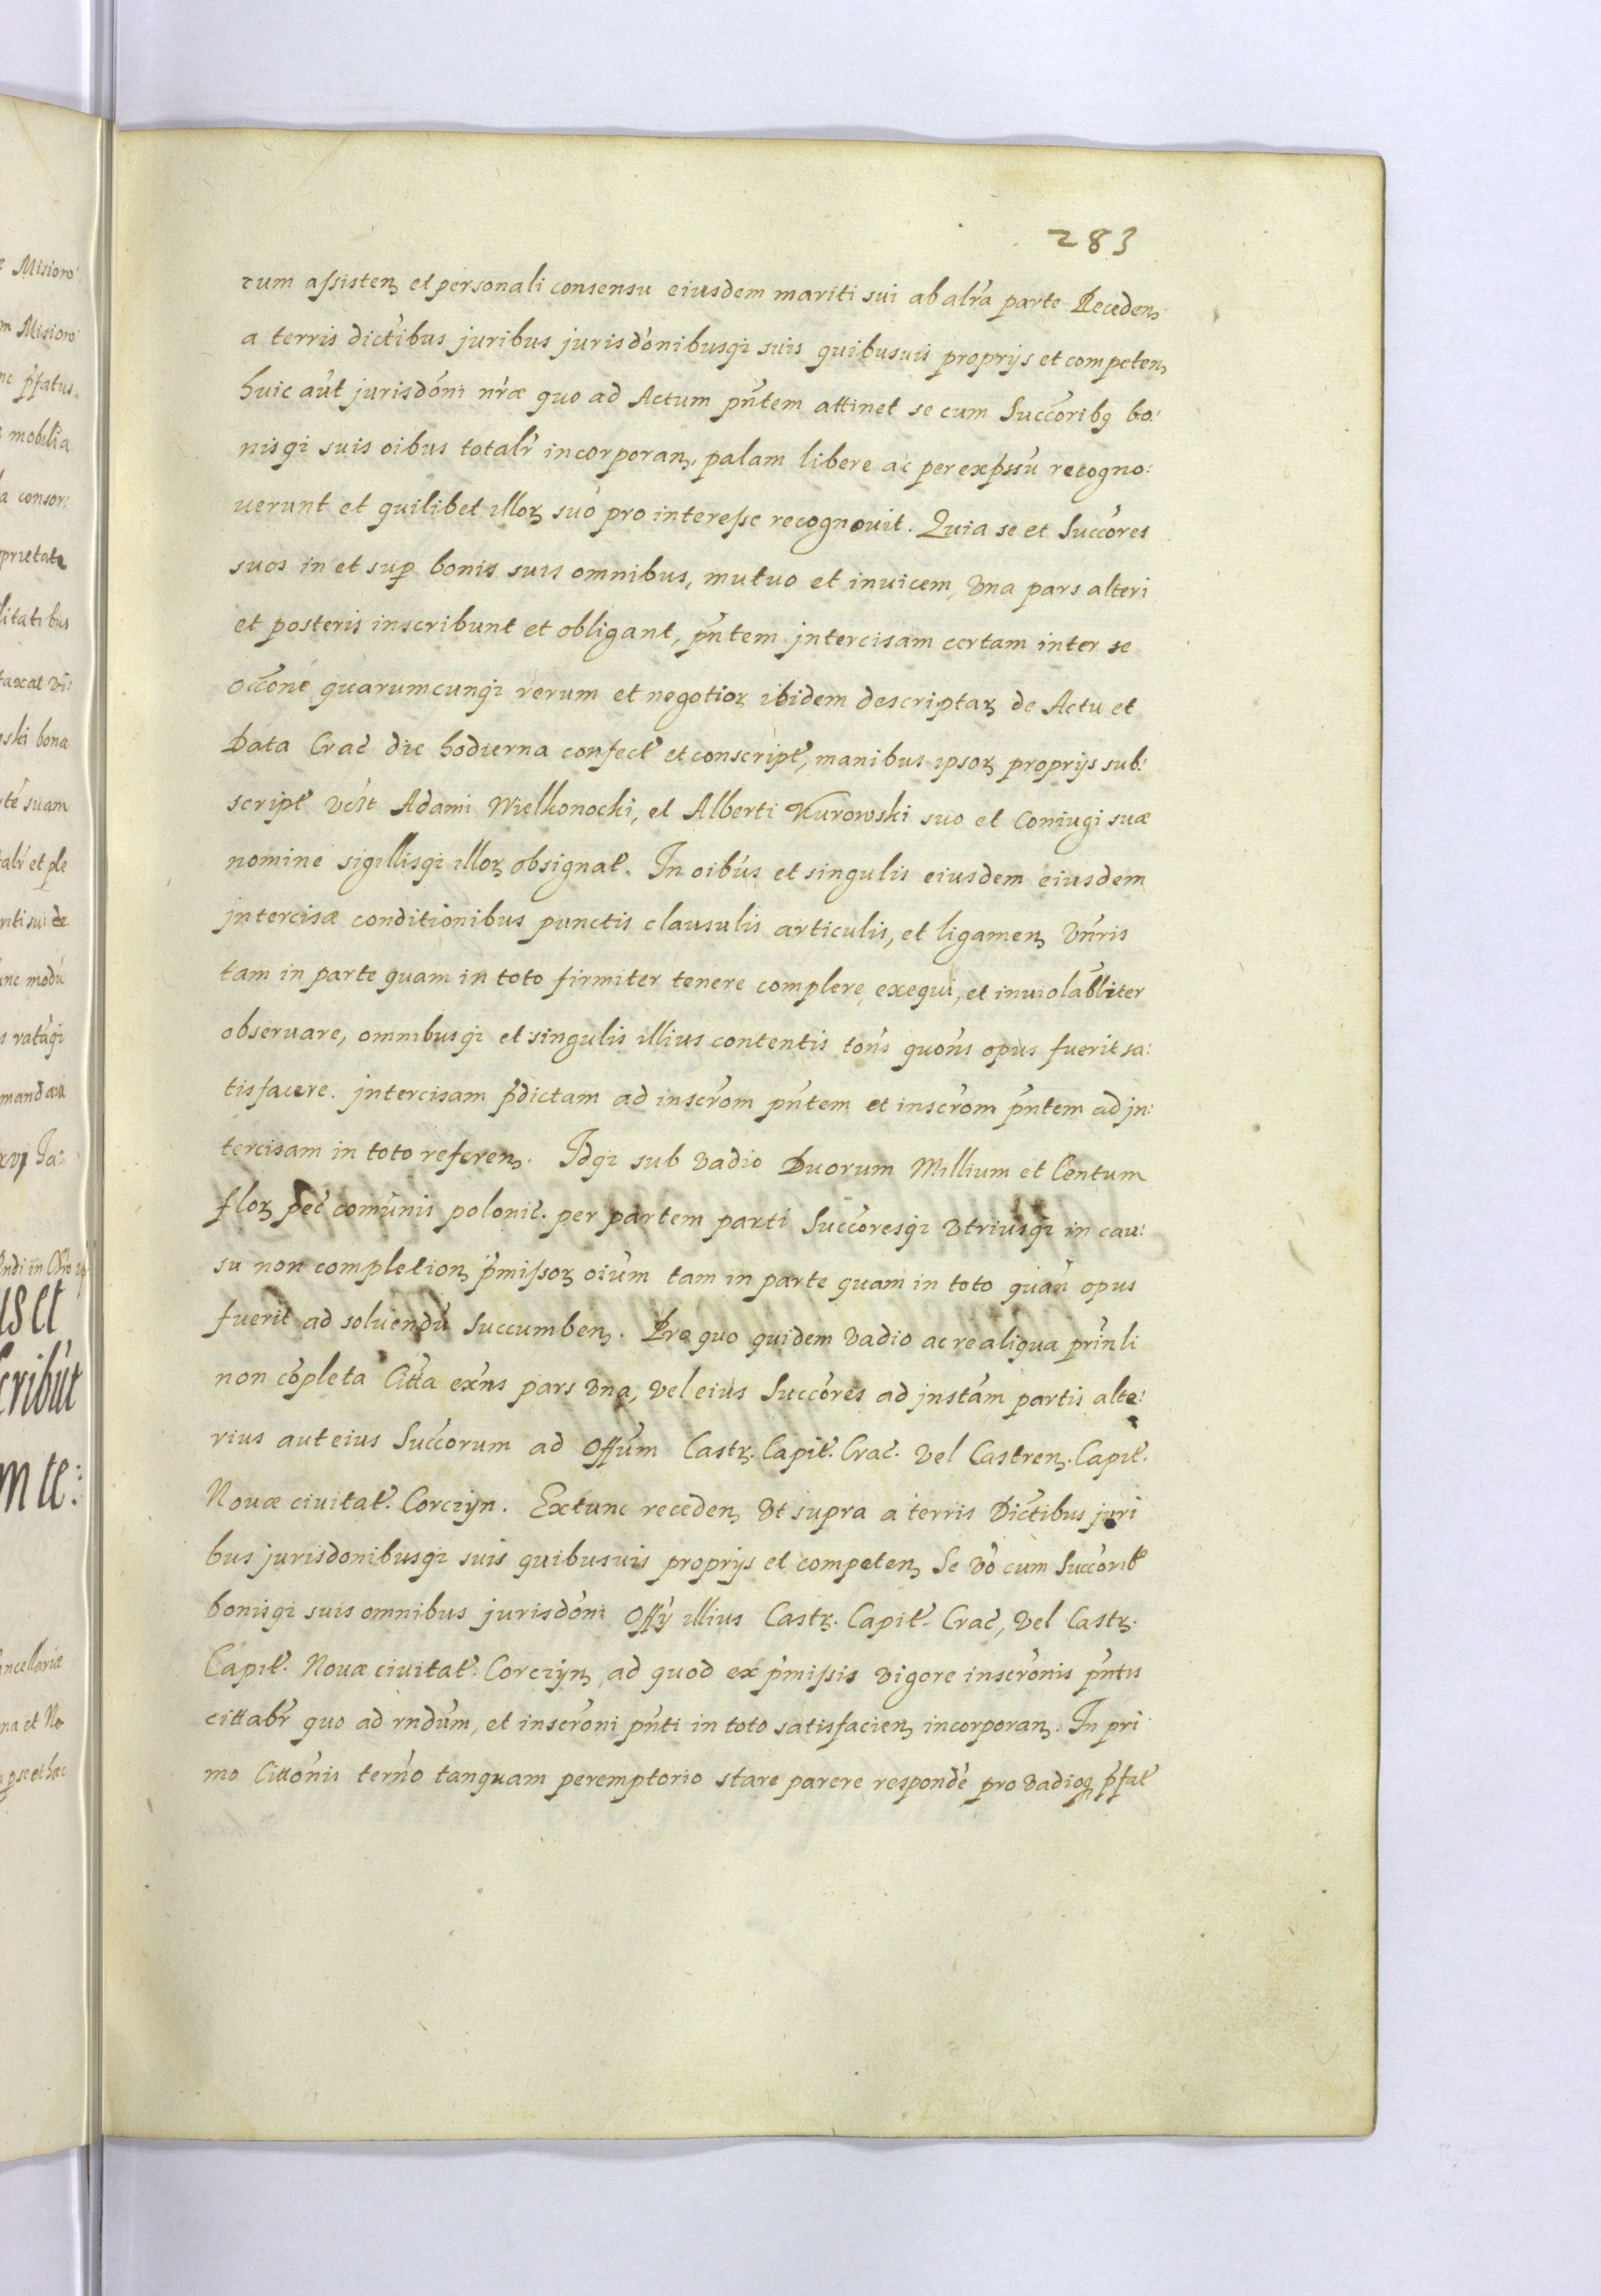 283
tum assisten et personali consensu eiusdem mariti sui ab altra parte Receden
a terris dictibus juribus jurisdonibusqi suis quibusuis proprijs et competen
huic aut jurisdoni nrae quo ad Actum pntem attinet se cum Succoribq bo:
nisqi suis oibus totalr incorporan, palam libere ac per expssu recogno:
uerunt et quilibet illoꝝ suo pro interesse recognouit. Quia se et Succores
suos in et sup bonis suis omnibus, mutuo et inuicem, vna pars alteri
et posteris inscribunt et obligant, pntem jntercisam certam inter se
occone quarumcunqi rerum et negotioꝝ ibidem descriptaꝝ de Actu et
Data Crac die hodierna confect et conscript, manibus ipsoꝝ proprijs sub:
script vclt Adami Wielkonocki, et Alberti Kurowski suo et Coniugi suae
nomine sigillisqi illoꝝ obsignat. In oibus et singulis eiusdem eiusdem
jntercisae conditionibus punctis clausulis articulis, et ligamen vnris
tam in parte quam in toto firmiter tenere complere, exequi, et inuiolabliter
obseruare, omnibusqi et singulis illius contentis tons quons opus fuerit sa:
tisfacere. jntercisam pdictam ad inscrom pntem et inscrom pntem ad jn:
tercisam in toto referen. Idqi sub vadio Duorum Millium et Centum
floꝝ pec comunis polonic. per partem parti Succoresqi vtriusqi in cau:
su non completion pmissoꝝ oium tam in parte quam in toto quan opus
fuerit ad soluendu succumben. Pro quo quidem vadio ac re aliqua prinli
non copleta Citta exns pars vna, vel eius Succores ad jnstam partis alte:
rius aut eius Succorum ad Offum Castꝝ. Capit. Crac. vel Castren. Capit.
Nouae ciuitat. Corczyn. Extunc receden vt supra a terris Dictibus juri
bus jurisdonibusqi suis quibusuis proprijs et competen Se vo cum Succorib
bonisqi suis omnibus jurisdoni Offy illius Castꝝ. Capit. Crac, vel Castꝝ.
Capit. Nouae ciuitat. Corczyn ad quod ex pmissis vigore inscronis pntis
cittabr quo ad rndum, et inscroni pnti in toto satisfacien incorporan. In pri
mo Cittonis terno tanquam peremptorio stare parere responde pro vadioq pfat